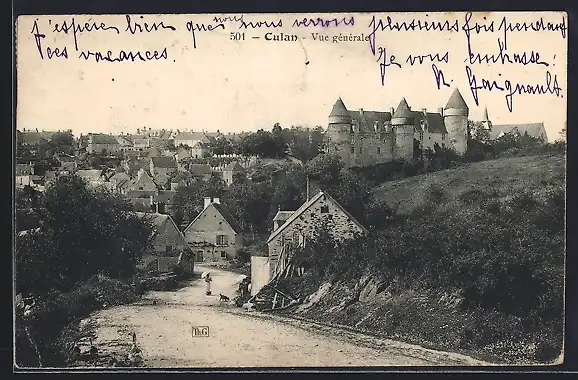 j'espère bien que nous nous verrons plusieurs fois pendant
ces vacances.
501 - Culan - Vue générale
Je vous embrasse.
Th G